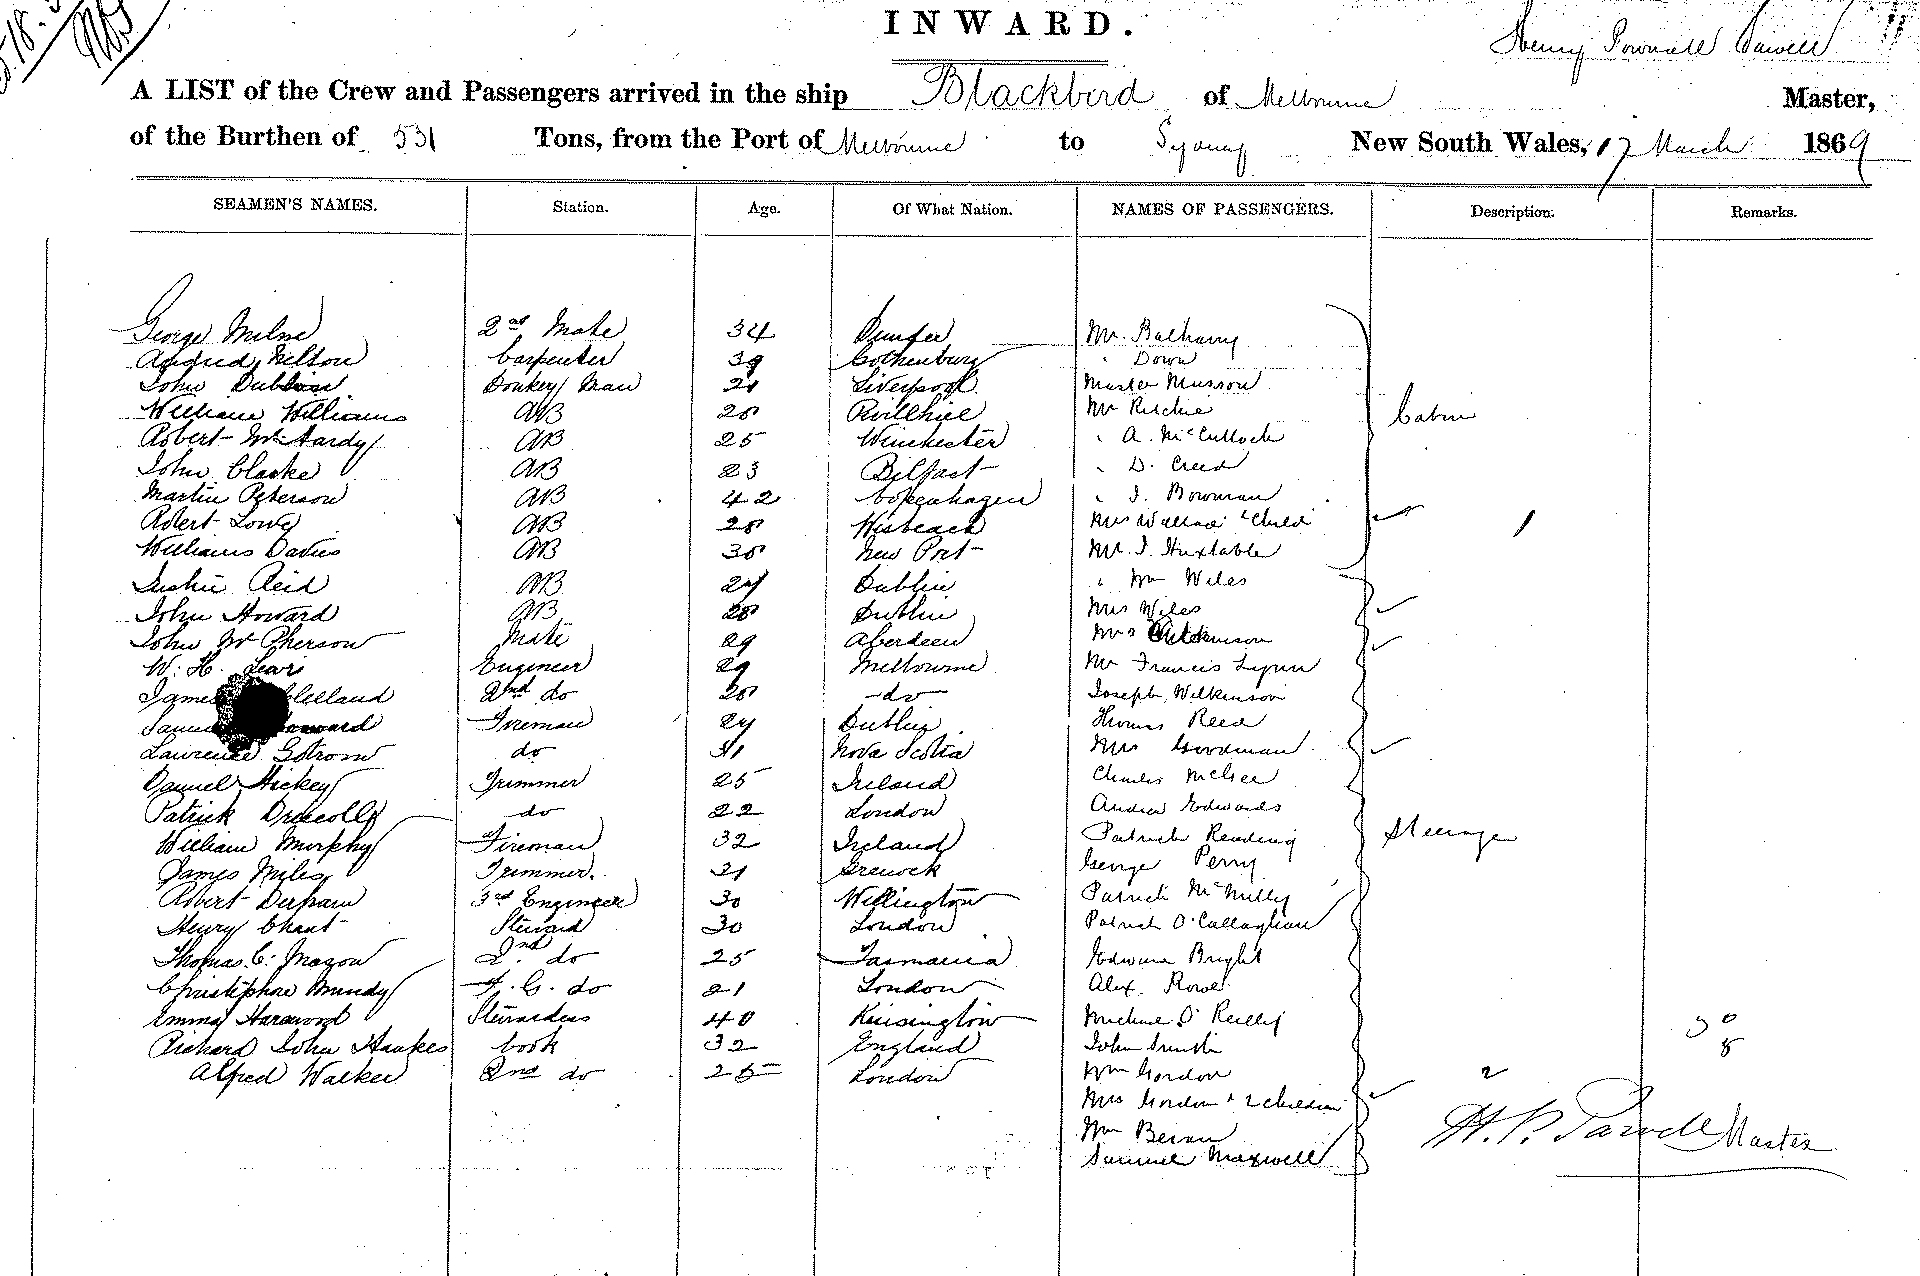 INWARD.
Henry Pownall
A LIST of the Crew and Passengers arrived in the ship Blackbird of Melbourne Master,
of the Burthen of 531 Tons, from the Port of Melbourne to Sydney New South Wales, 17 March 1869
SEAMEN'S NAMES. Station. Age. Of What Nation. NAMES OF PASSENGERS. Description. Remarks.
George Milne 2nd Mate 34 Dundee Mr. Balharry
Nelson Carpenter 39 Gothenburg " Down
John Donkey Man Liverpool Master Musson
William Williams AB Mr Ritchie Cabin
Robert McHardy AB 25 Winchester " A. McCulloch
John Clarke AB 23 Belfast " D. Creed
Martin Peterson AB 42 Copenhagen " J. Bowman
Robert Lowe AB Wisbeach Mrs Wallace & Child
Williams Davies AB New Port Mr. J. Huxtable
Reid AB Dublin " Wm Wiles
John Howard AB Dublin Mrs Wiles
John McPherson Mate 29 Aberdeen Mrs
W. H. Engineer 29 Melbourne Mr Francis Lynn
James 2nd do do Joseph Wilkinson
Fireman Dublin Thomas Reed
Lawrence do Nova Scotia Mrs Goodman
Daniel Hickey Trimmer 25 Ireland Charles McGee
Patrick Driscoll do 22 London Andrew Edwards
William Murphy Fireman 32 Ireland Patrick Reading Steerage
James Miles Trimmer. 21 George Perry
Robert Derham 3rd Engineer 30 Wellington Patrick McNully
Henry Chant Steward 30 London Patrick O'Callaghan
Thomas C. Mazon 2nd do 25 Tasmania Edward Bright
Christopher Mundy F. C. do 21 London Alex. Rowe
Emma Stewardess 40 Kensington Michael O'Reilly
Richard John Hawkes Cook 32 England John Smith
Alfred Walker 2nd do 25 London Wm Gordon
Mrs Gordon & 2 Children
Wm Bevan
Samuel Maxwell
H. P. Master